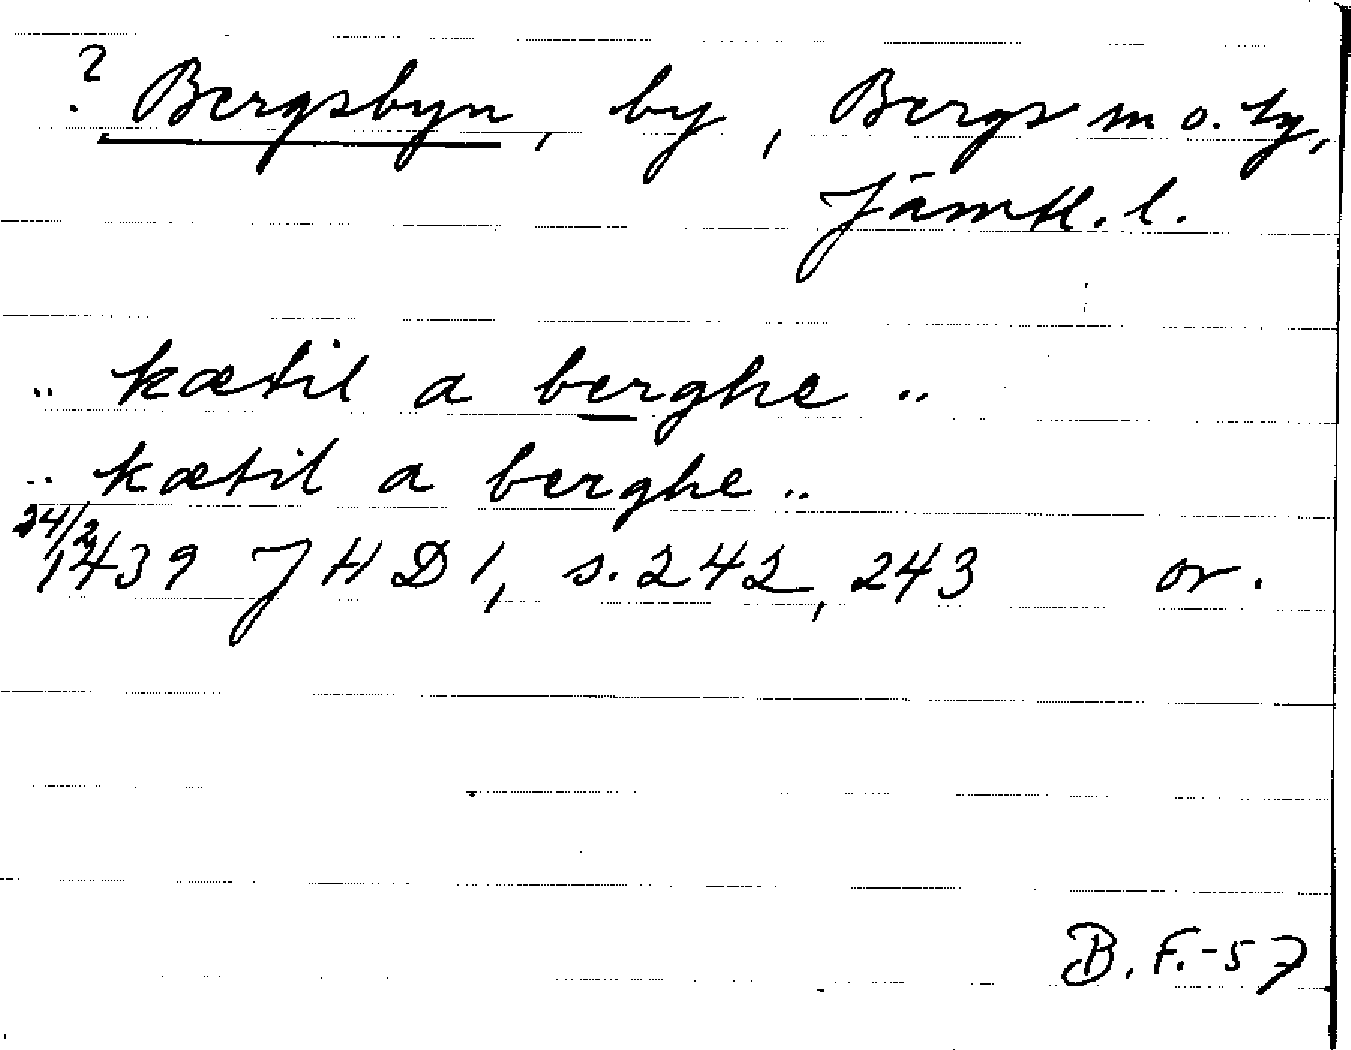 ? Bergsbyn, by, Bergs sn o. tg,
Jämtl. l.
.. kætil a berghe ..
.. kætil a berghe ..
24/2
1439 JHD 1, s. 242, 243 or.
B. F.-57